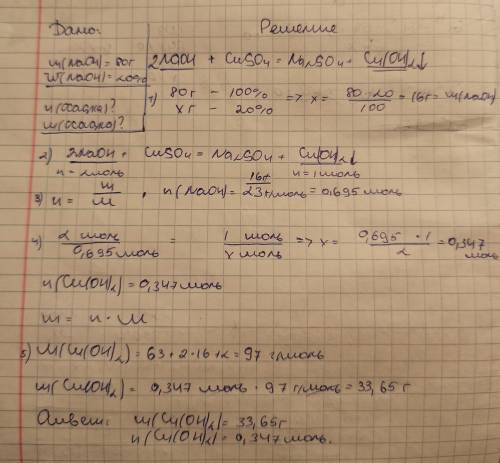 Дано: Решение
m(NaOH) = 80г
w(NaOH) = 20%
2NaOH + CuSO4 = Na2SO4 + Cu(OH)2↓
n(осадка)?
m(осадка)?
1) 80г - 100% => x = 80 · 20 / 100 = 16г = m(NaOH)
xг - 20%
2) 2NaOH + CuSO4 = Na2SO4 + Cu(OH)2↓
n = 2моль n = 1моль
3) n = m / M , n(NaOH) = 16г / 23г/моль = 0,695моль
4) 2 моль / 0,695моль = 1 моль / x моль => x = 0,695 · 1 / 2 = 0,347 моль
n(Cu(OH)2) = 0,347 моль
m = n · M
5) M(Cu(OH)2) = 63 + 2 · 16 + 2 = 97 г/моль
m(Cu(OH)2) = 0,347 моль · 97 г/моль = 33,65 г
Ответ: m(Cu(OH)2) = 33,65г
n(Cu(OH)2) = 0,347моль.